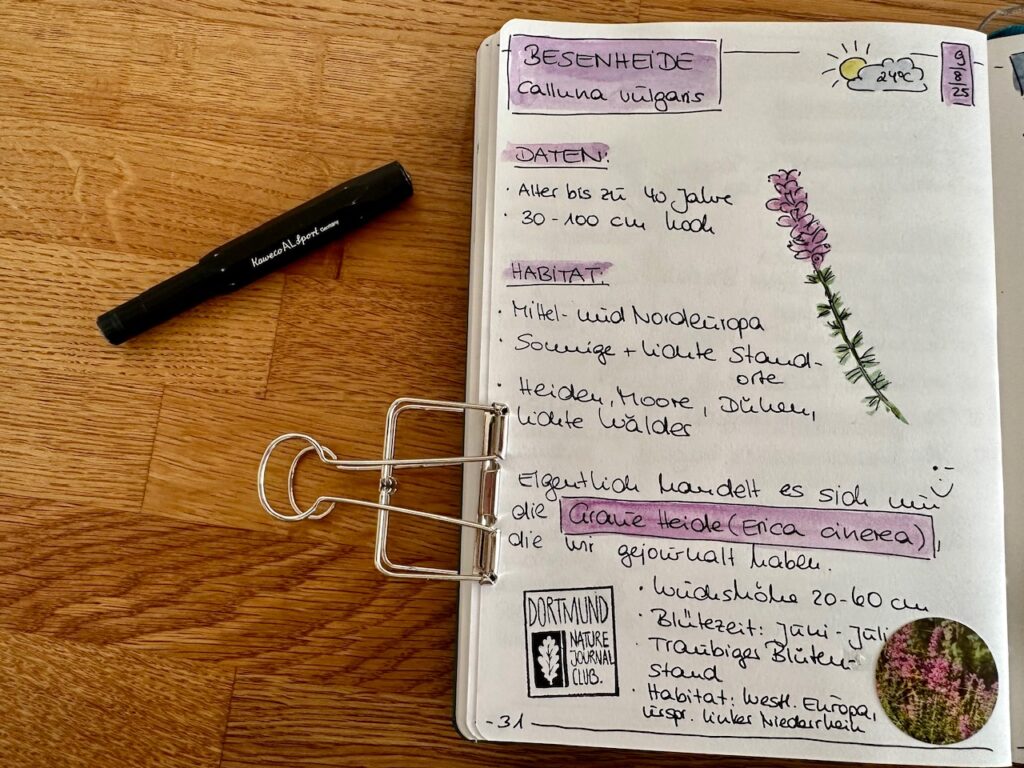 BESENHEIDE
Calluna vulgaris
24°C
9
8
25
DATEN:
· Alter bis zu 40 Jahre
· 30-100 cm hoch
HABITAT:
· Mittel- und Nordeuropa
· Sonnige + lichte Stand-
orte
· Heiden, Moore, Dünen,
lichte Wälder
Eigentlich handelt es sich um
die Graue Heide (Erica cinerea),
die wir gejournalt haben.
· Wuchshöhe 20-60 cm
· Blütezeit: Juni - Juli
· Traubiger Blüten-
stand
· Habitat: Westl. Europa,
urspr. linker Niederrhein
DORTMUND
NATURE
JOURNAL
CLUB.
-31
Kaweco AL Sport Germany